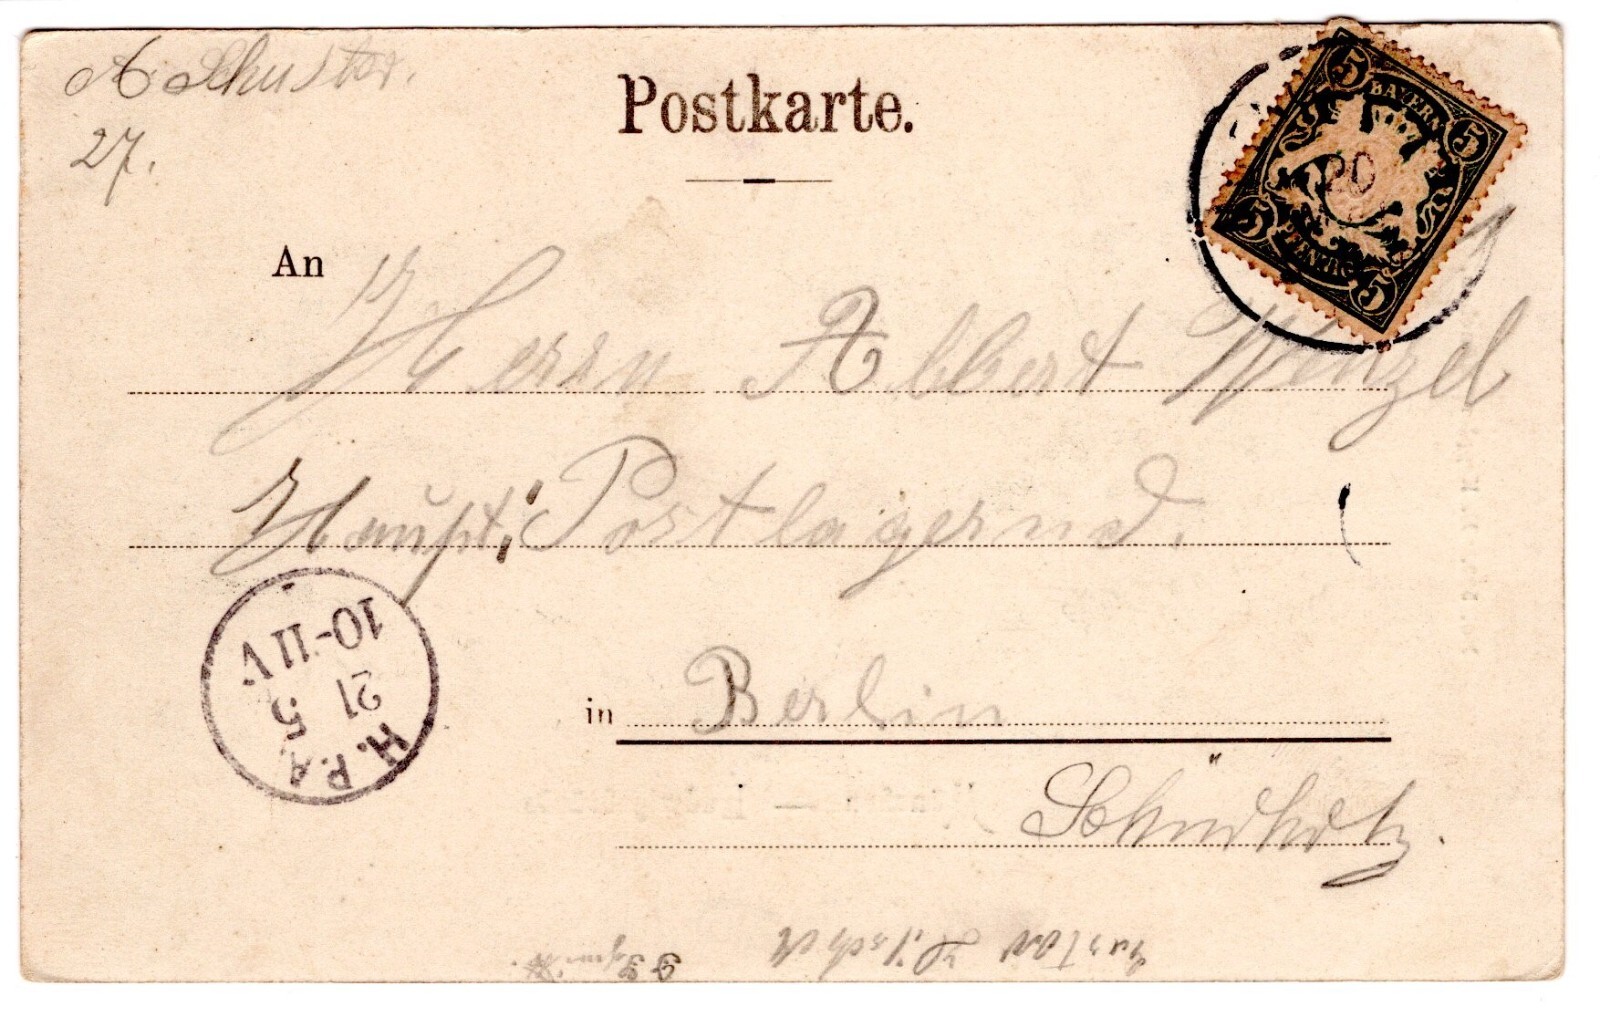 A. Schuster.
27.
Postkarte.
5 BAYERN 5
20
5 PFENNIG 5
An
Herrn Albert Wenzel
Haupt; Postlagernd.
10-11 V
21 5
H. P. A
in Berlin
Gustav